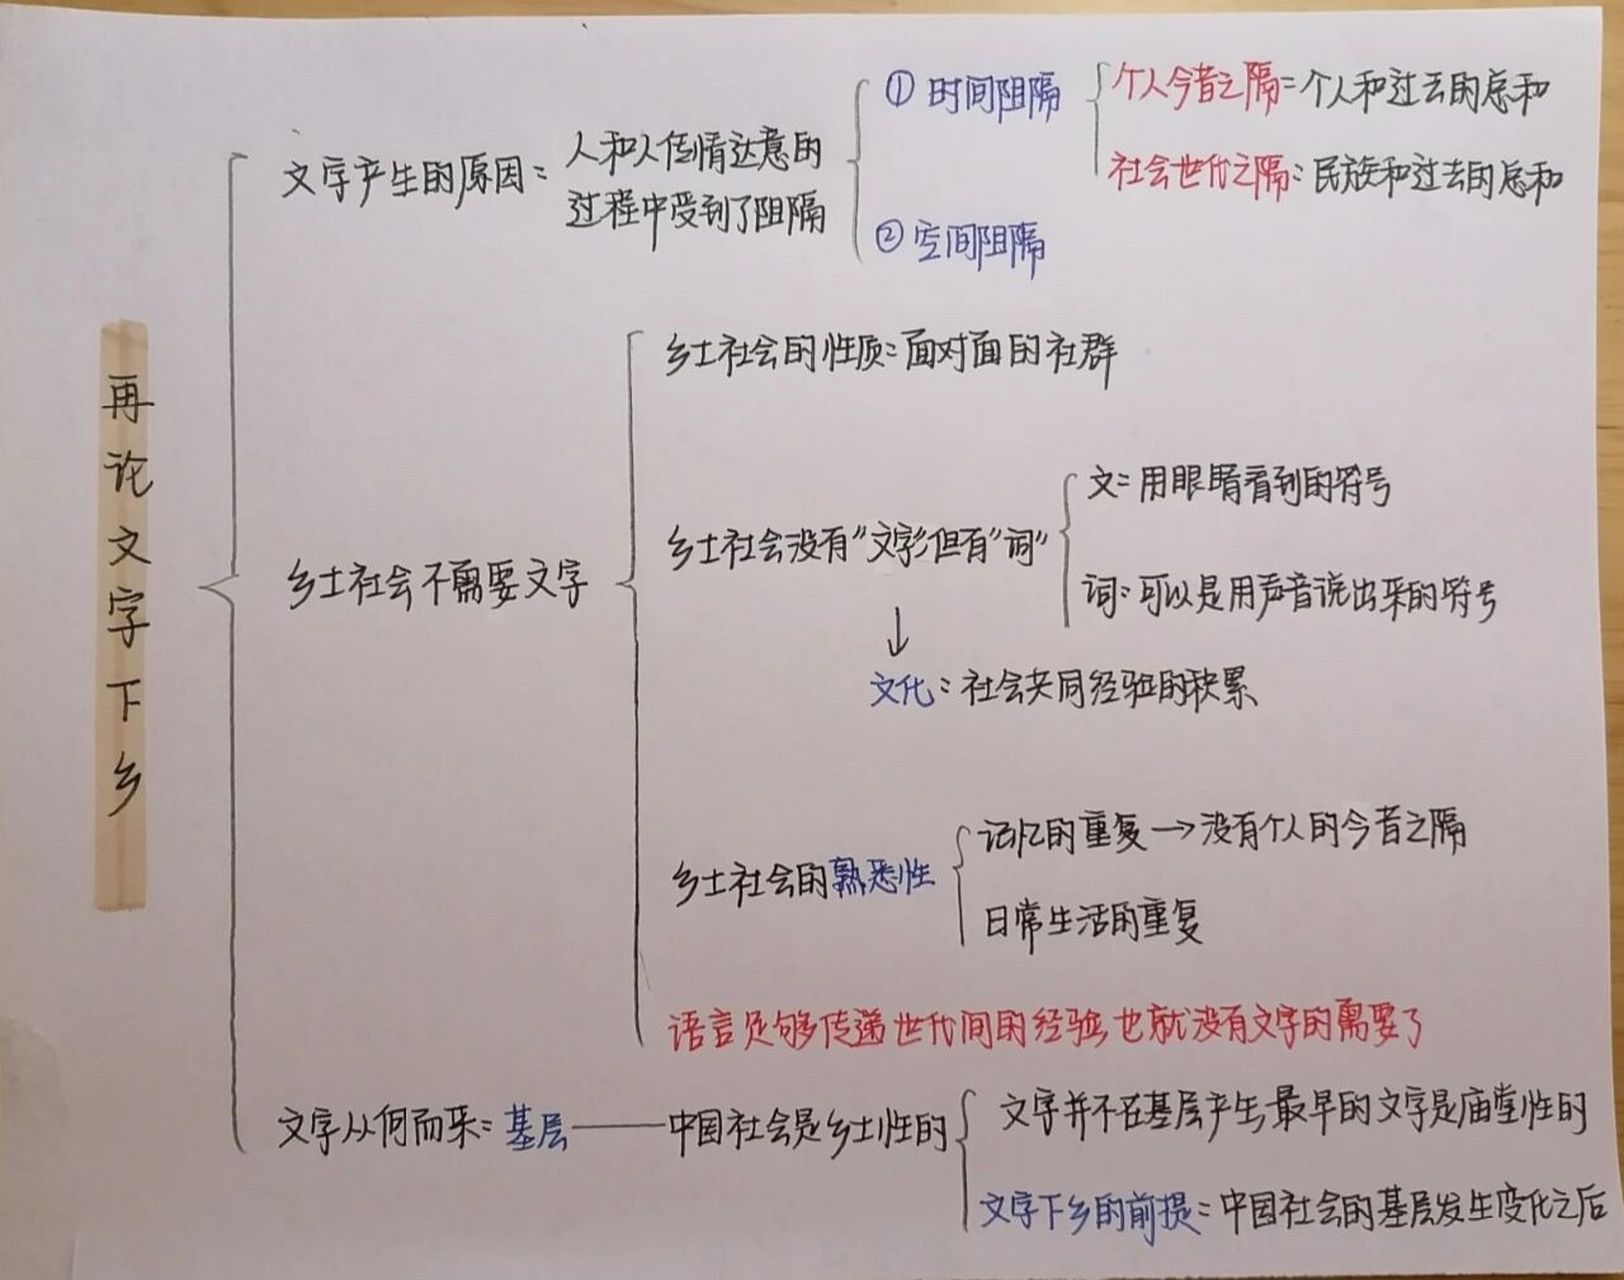 再论文字下乡
文字产生的原因:
人和人传情达意的
过程中受到了阻隔
①时间阻隔
个人今昔之隔:个人和过去的总和
社会世代之隔:民族和过去的总和
②空间阻隔
乡土社会不需要文字
乡土社会的性质:面对面的社群
乡土社会没有"文字"但有"词"
文:用眼睛看到的符号
词:可以是用声音说出来的符号
↓
文化:社会共同经验的积累
乡土社会的熟悉性
记忆的重复→没有个人的今昔之隔
日常生活的重复
语言足够传递世代间的经验也就没有文字的需要了
文字从何而来:基层——中国社会是乡土性的
文字并不在基层产生,最早的文字是庙堂性的
文字下乡的前提:中国社会的基层发生变化之后